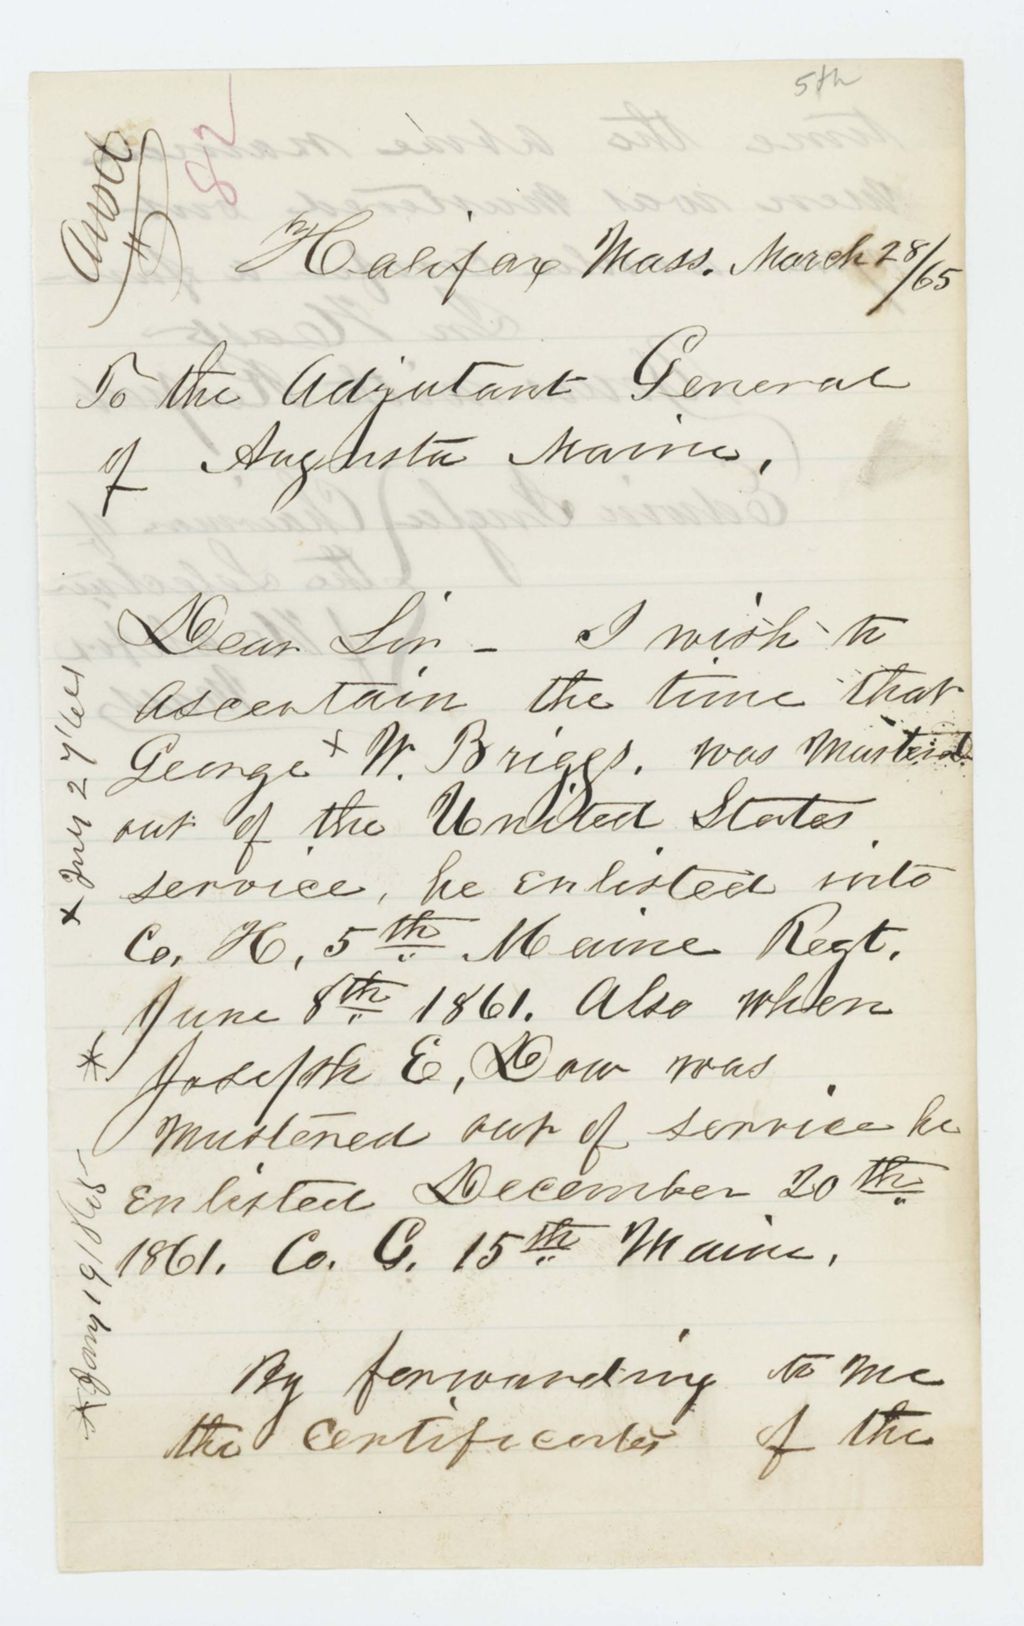 5th
82
Ansd
Halifax Mass. March 28/65
To the Adjutant General
of Augusta Maine.
Dear Sir - I wish to
ascertain the time that
George x W. Briggs. was Musterd
out of the United States
service, he enlisted into
Co. H, 5th Maine Regt.
June 8th 1861. Also when
* Joseph E, Dow was
Mustered out of service he
Enlisted December 20th
1861. Co. G. 15th Maine.
By forwarding to me
the Certificates of the
x July 27'61
* Jany 19, 1865